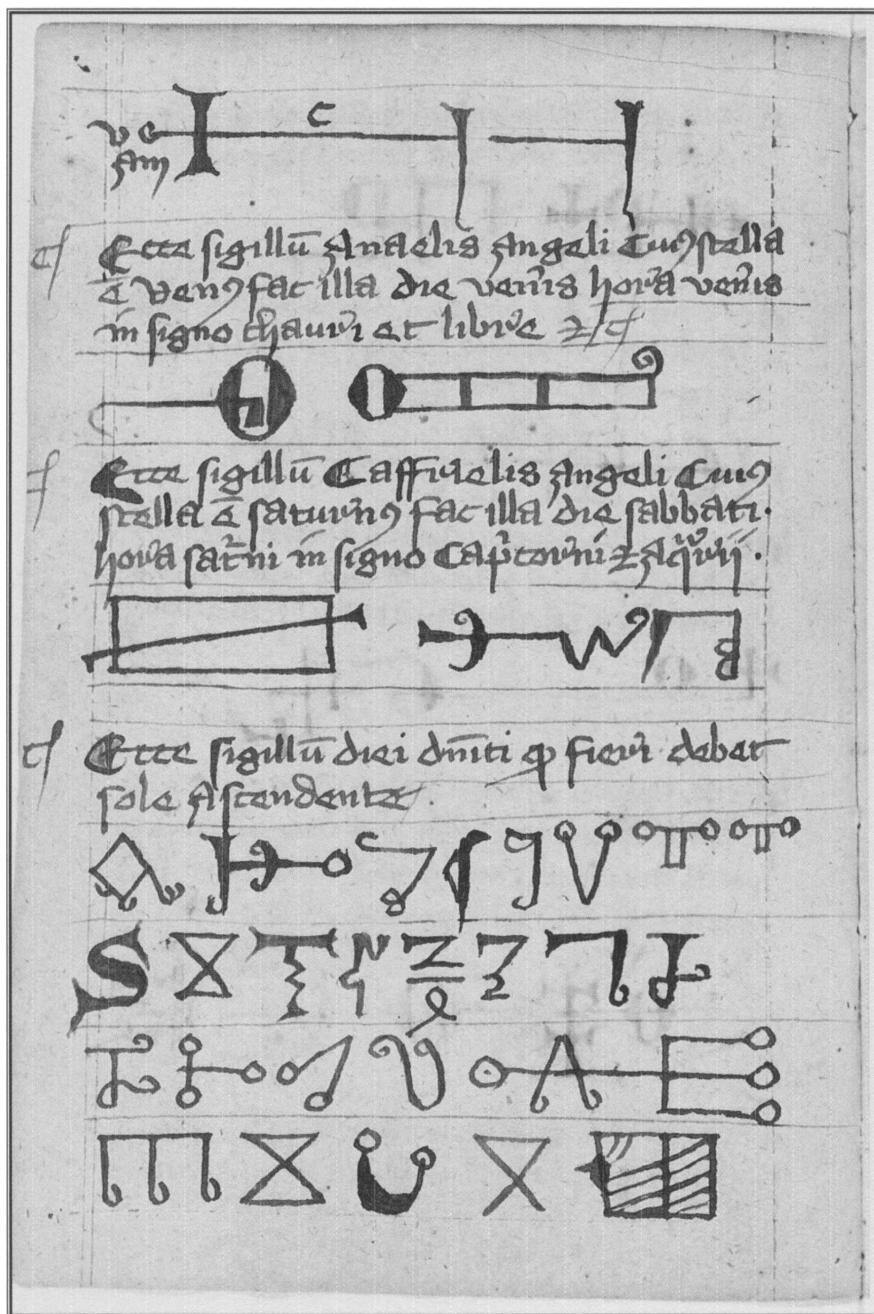 c
Ecce sigillū Anaelis Angeli Cui⁹ stella
ē ven⁹ fac illa die ven̄is hora ven̄is
in signo thauri et libre
Ecce sigillū Caffriaelis Angeli Cui⁹
stella ē saturn⁹ fac illa die sabbati·
hora sat̄ni in signo Cap̄corni ⁊ Aq̄rii·
Ecce sigillū diei dn̄ici fieri debet
sole Ascendente